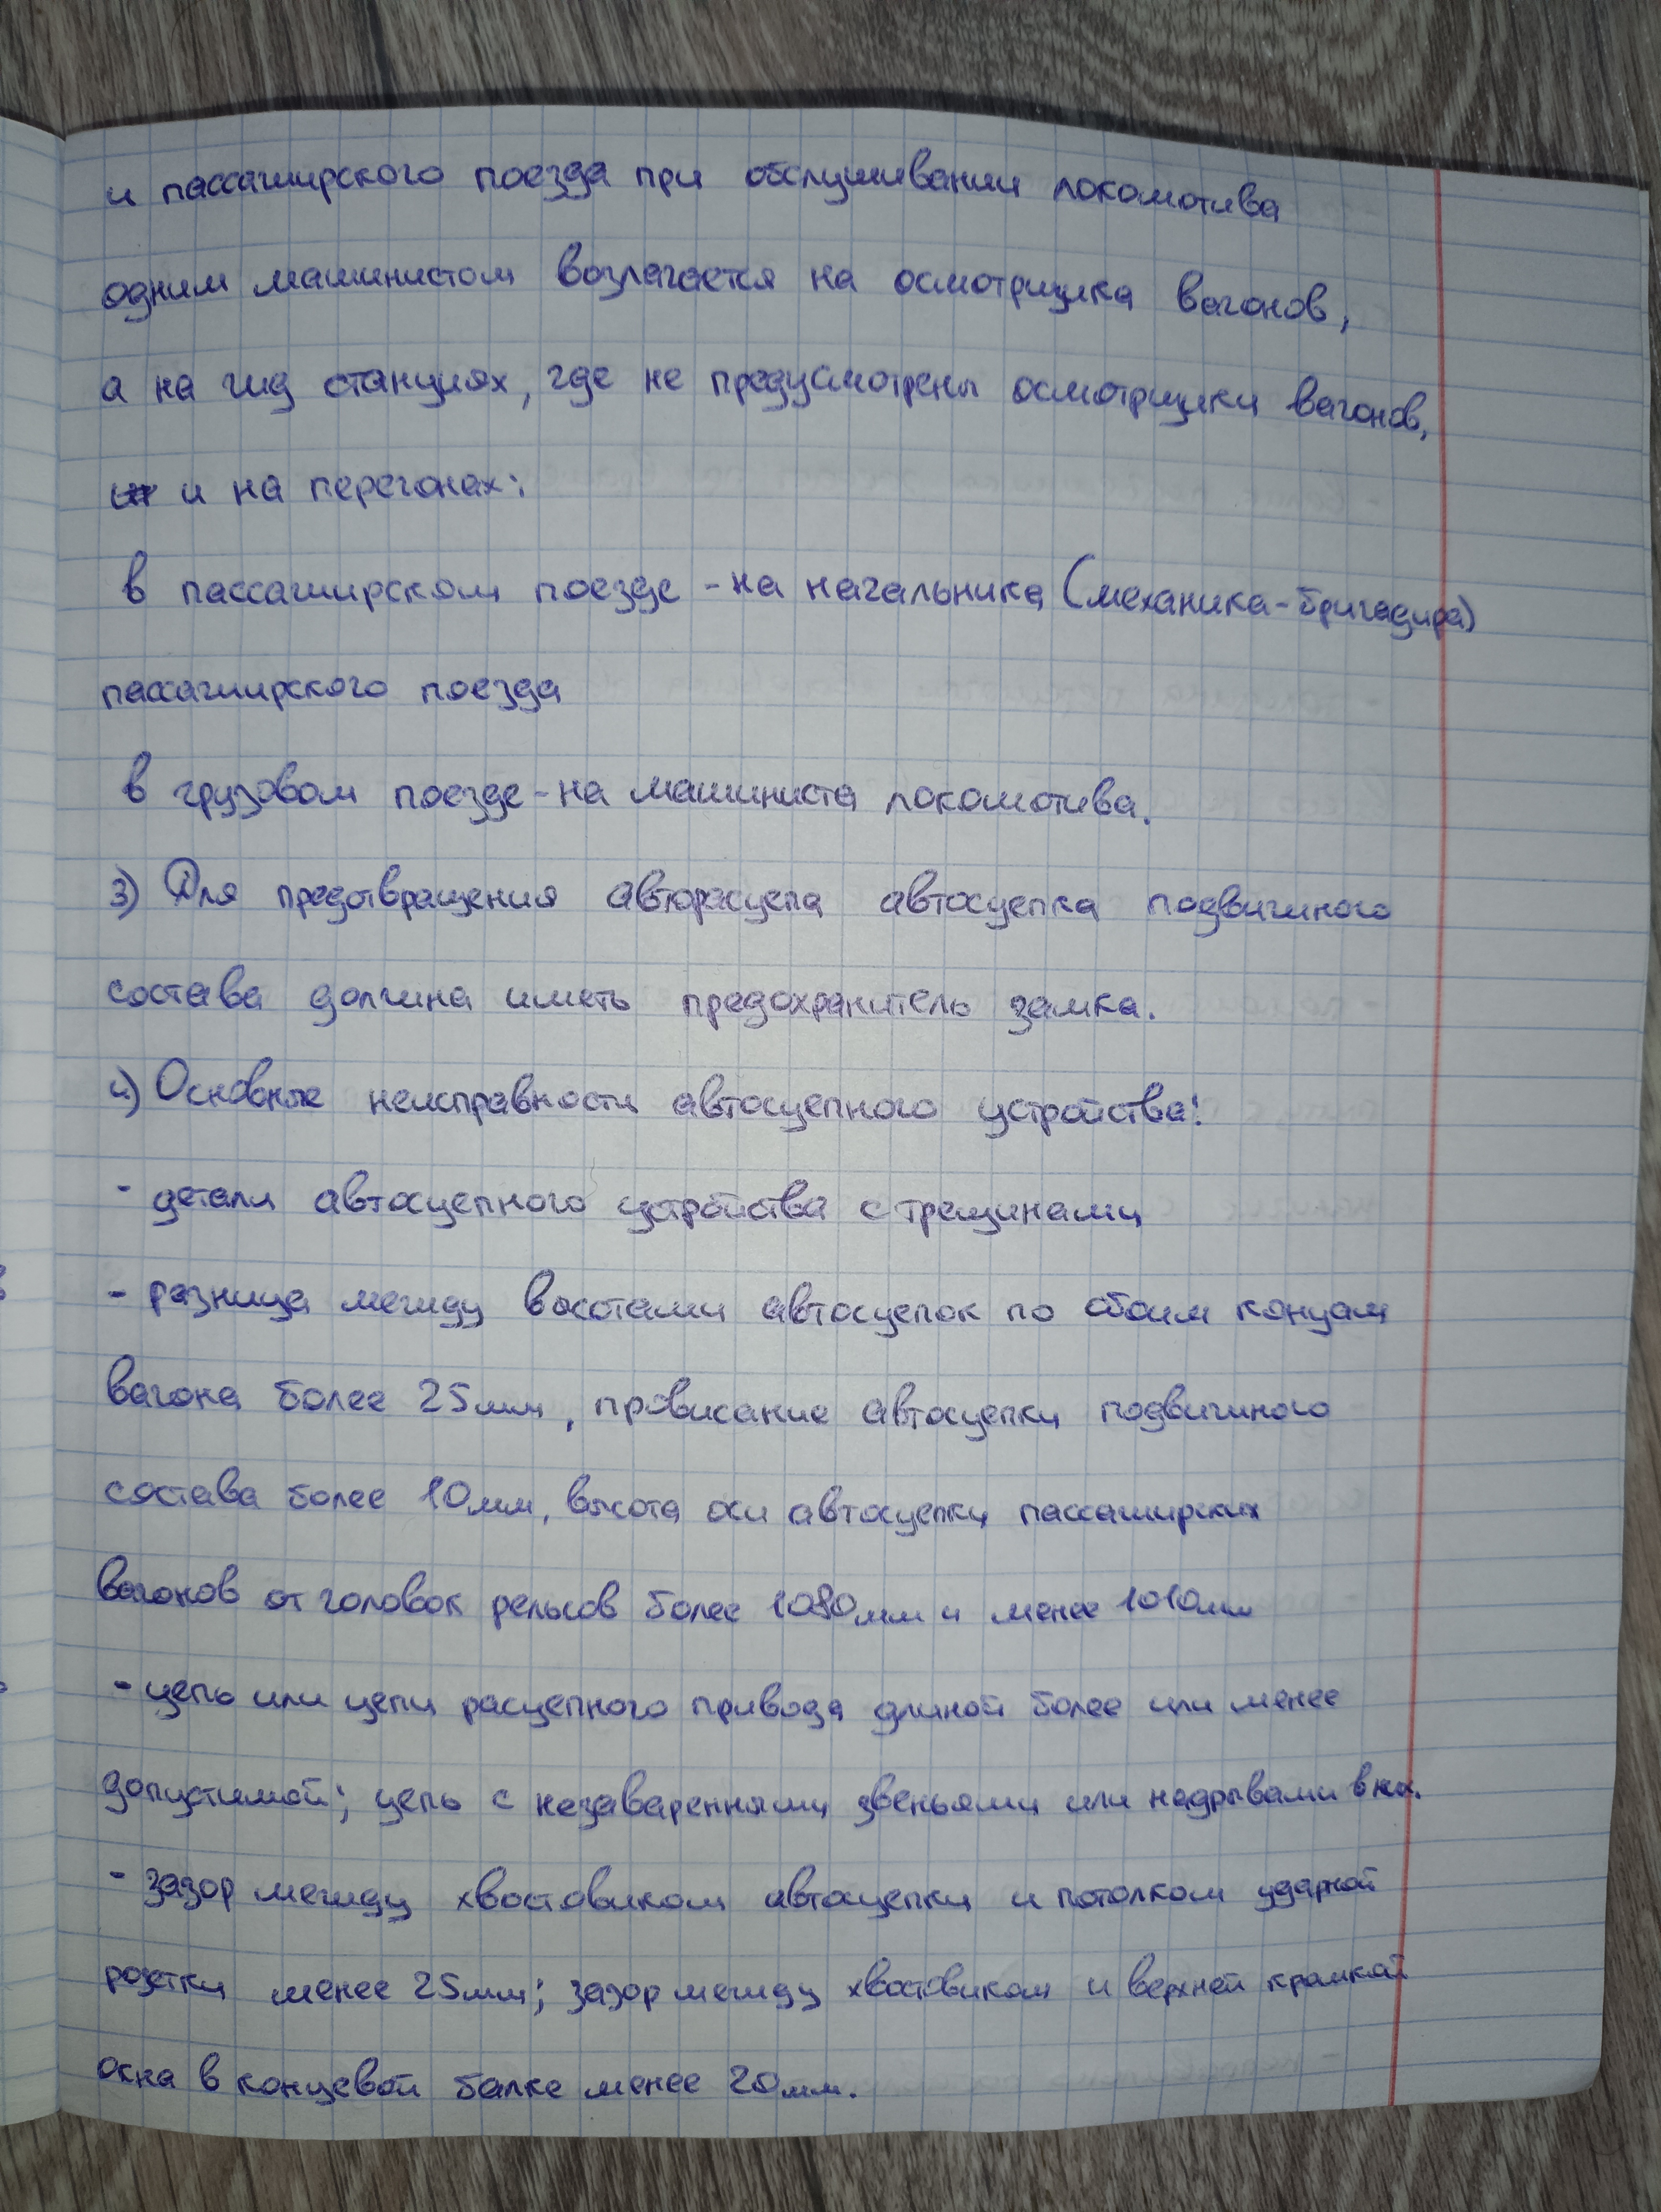 и пассажирского поезда при обслуживании локомотива
одним машинистом возлагается на осмотрщика вагонов,
а на жд станциях, где не предусмотрены осмотрщики вагонов,
и на перегонах:
в пассажирском поезде - на начальника (механика-бригадира)
пассажирского поезда
в грузовом поезде - на машиниста локомотива.
3) Для предотвращения авторасцепа автосцепка подвижного
состава должна иметь предохранитель замка.
4) Основные неисправности автосцепного устройства:
- детали автосцепного устройства с трещинами
- разница между высотами автосцепок по обоим концам
вагона более 25мм, провисание автосцепки подвижного
состава более 10мм, высота оси автосцепки пассажирских
вагонов от головок рельсов более 1080мм и менее 1010мм
- цепь или цепи расцепного привода длиной более или менее
допустимой; цепь с незаваренными звеньями или надрывами в них.
- зазор между хвостовиком автосцепки и потолком ударной
розетки менее 25мм; зазор между хвостовиком и верхней кромкой
окна в концевой балке менее 20мм.